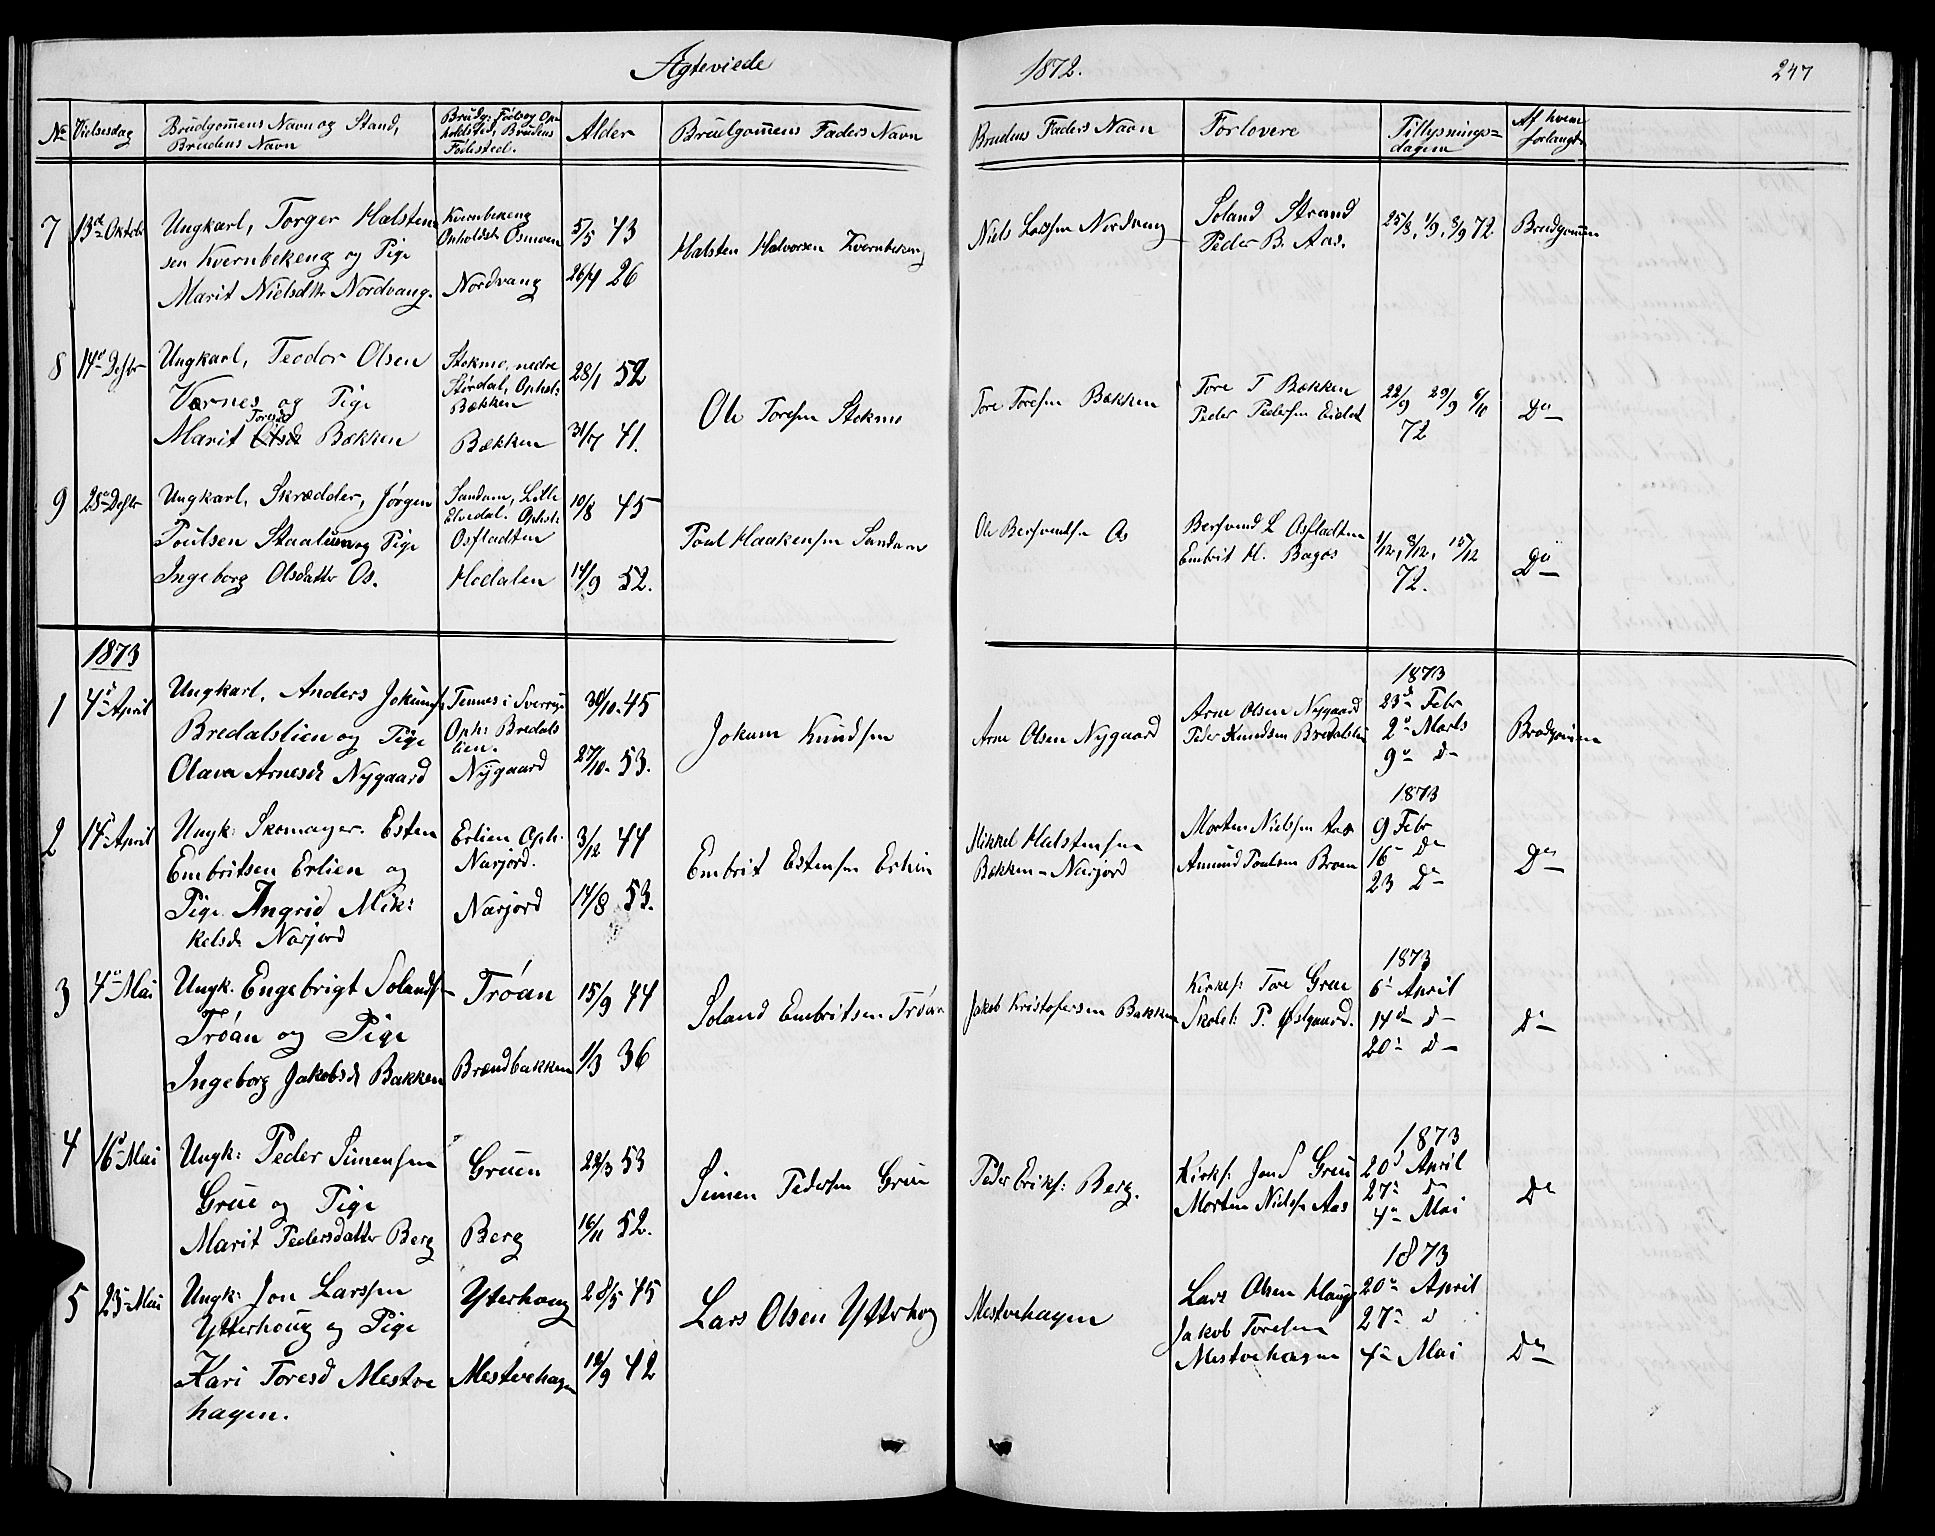 Ægteviede
1872.
247
No
Vielsesdag
Brudgomens Navn og Stand,
Brudens Navn
Brudg: Føde og Op-
holdssted, Brudens
Fødested.
Alder
Brudgomens Faders Navn
Brudens Faders Navn
Forlovere
Tillysnings=
dagene
Af hvem
forlangt
7
13de Oktobr
Ungkarl, Torger Halsten
sen Kvernbekeng og Pige
Marit Nielsdtr Nordvang.
Kvernbekeng
Opholdsst Osmoen
Nordvang
5/5 43
26/4 26
Halsten Halvorsen Kvernbekeng
Niels Larssen Nordvang
Soland Strand
Peder B. Aas.
25/8, 1/9, 8/9 72
Brudgomen
8
14de Desbr
Ungkarl, Teodor Olsen
Værnes og Pige
Toresd
Marit Bækken
Stokmo, nedre
Størdal, Ophst:
Bækken
Bækken
28/1 52
31/7 41.
Ole Toresen Stokmo
Tore Toresen Bækken
Tore T Bækken
Peder Pedersen
22/9 29/9 6/10
72
Do
9
28de Desbr
Ungkarl, Skrædder, Jørgen
Poulsen og Pige
Ingeborg Olsdatter Os.
Sandom, Lille
Elvedal. Ophst:
Osfladten
Hodalen
10/8 45
14/9 52.
Poul Haakensen Sandom
Ole Bersvendsen Os
Bersvend L Osfladten
Embrit H. Bagos
1/12, 8/12, 15/12
72.
Do
1873
1
4de April
Ungkarl, Anders Jokums
Bredalslien og Pige
Olava Arnesd Nygaard
Tennes i Sverrige
Oph: Bredals
lien.
Nygaard
30/10 45
27/10 53.
Jokum Knudsen
Arne Olsen Nygaard
Arne Olsen Nygaard
Peder Knudsen Bredalslien
1873
23de Febr
2den Marts
9de D
Brudgomen
2
14de April
Ungk: Skomager. Esten
Embritsen Erlien og
Pige Ingrid Mik:
kelsd Narjord
Erlien Oph:
Narjord.
Narjord
3/12 44
14/8 53.
Embrit Estensen Erlien
Mikkel Halstensen
Bækken - Narjord
Morten Nielsen Aas
Amund Poulsen Broen
1873
9 Febr
16 Do
23 Do
Do
3
4de Mai
Ungk. Engebrigt Solands
Trøan og Pige
Ingeborg Jakobsd Bakken
Trøan
Brændbakken
15/9 44
1/3 36
Soland Embritsen Trøan
Jakob Kristofersen Bakken
Kirkes: Tore Grue
Skolel: P. Østgaard.
1873
6te April
14de D
20de D
Do
4
16de Mai
Ungk: Peder Simensen
Grue og Pige
Marit Pedersdatter Berg
Gruen
Berg
22/3 53
16/11 52.
Simen Pedersen Grue
Peder Eriks: Berg.
Kirkes: Jon S Grue
Morten Nielsen Aas
1873
20de April
27de D
4de Mai
Do
5
23de Mai
Ungk: Jon Larssen
Ytterhoug og Pige
Kari Toresd Mestve
hagen.
Ytterhoug
Mestvehagen
28/5 45
12/9 42
Lars Olsen Ytterhog
Mestvehagen
Lars Olsen Haug
Jakob Toresen
Mestvehagen
1873
20de April
27de d
4de Mai
Do